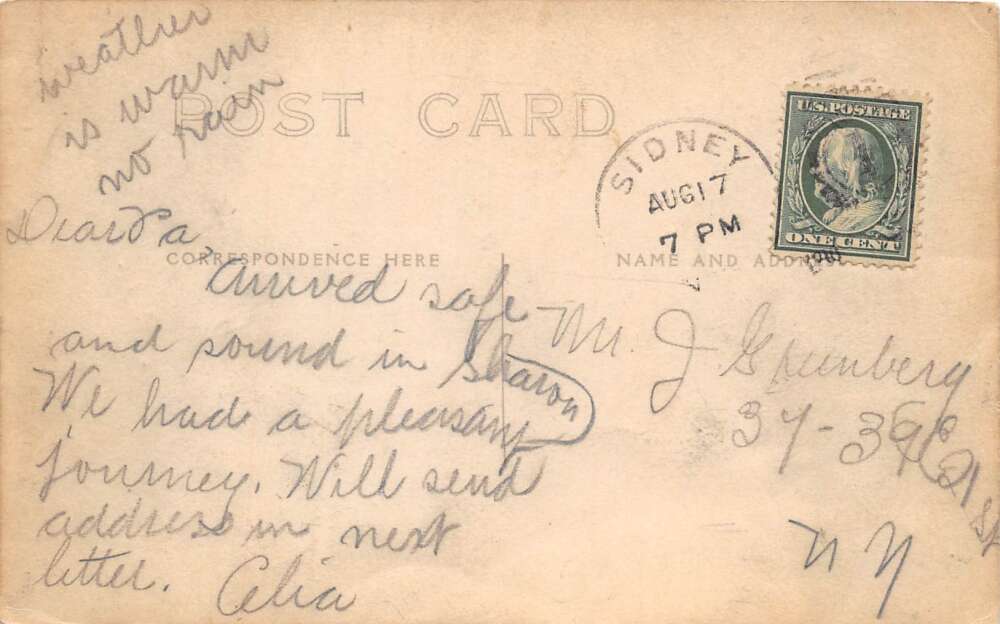 weather
is warm
no rain
POST CARD
SIDNEY
AUG 17
7 PM
U.S. POSTAGE
ONE CENT
Dear Pa,
CORRESPONDENCE HERE
NAME AND ADDRESS
Arrived safe
and sound in Sharon
We had a pleasant
journey. Will send
address in next
letter. Celia
Mr. J Greenberg
37-39 E 21 St
N Y